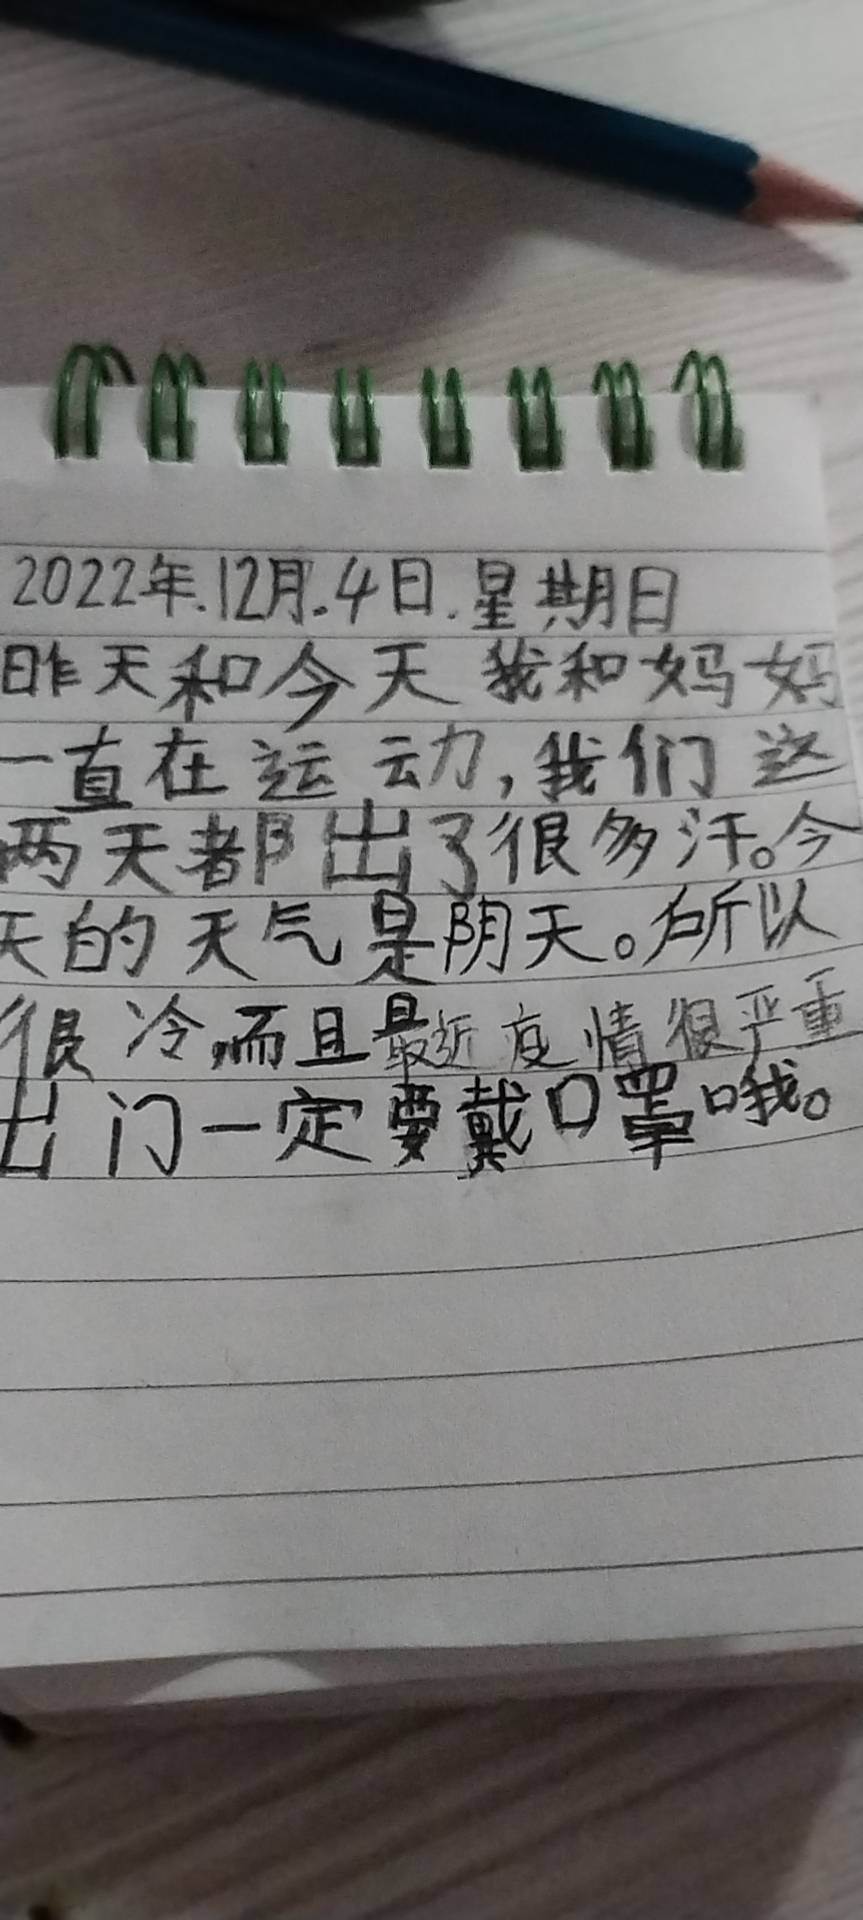 2022年.12月.4日.星期日
昨天和今天我和妈妈
一直在运动,我们这
两天都出了很多汗。今
天的天气是阴天。所以
很冷,而且最近疫情很严重
出门一定要戴口罩哦。